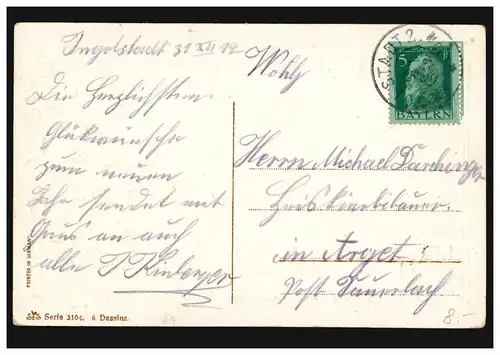 Ingolstadt 31 XII 12
Die Herzlichsten
Glükwünsche
zum neuen
Jahr sendet mit
Grus an auch
alle
PRINTED IN GERMANY
Serie 3104. 6 Dessins.
Wohlg
STADT 2
5 PF
BAYERN
Herrn Michael Darchinger
in Arget
Post Sauerlach
8.-